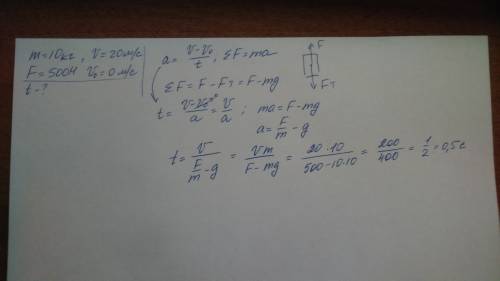 m=10кг, V=20м/с
F=500Н V₀=0м/с
t-?
a = (V-V₀)/t ; ΣF=ma
ΣF = F - Fт = F - mg
t = (V-V₀⁰)/a = V/a ; ma = F - mg
a = F/m - g
t = V/(F/m - g) = Vm/(F-mg) = 20·10/(500-10·10) = 200/400 = 1/2 = 0,5с
F
Fт